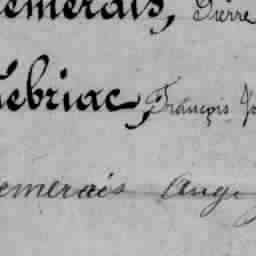 emerais, Pierre
ebriac, François Jo
emerais Ange